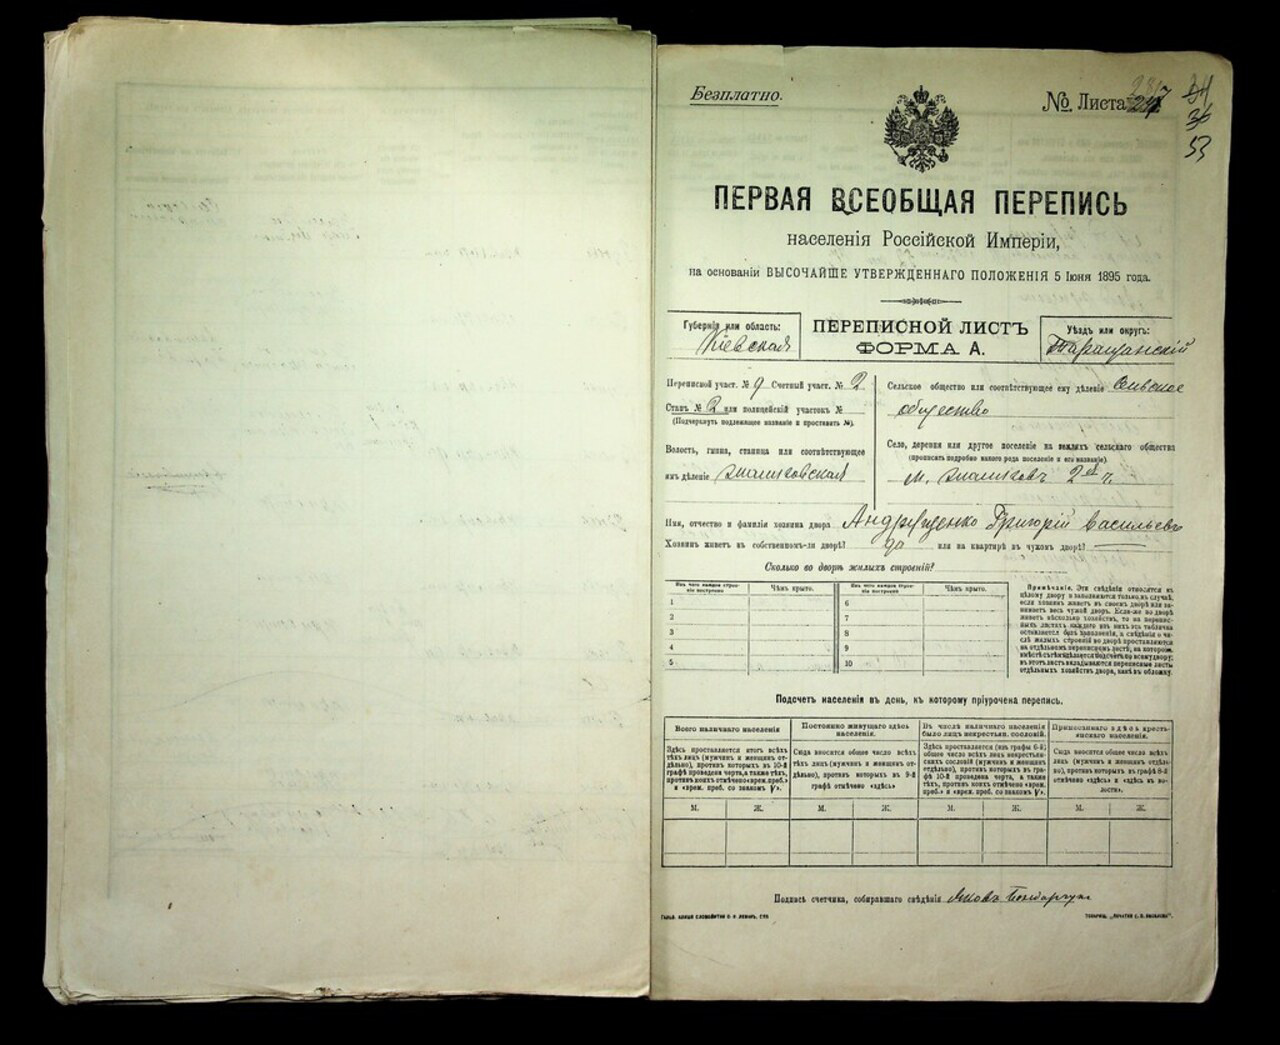 Безплатно.
№ Листа
53
ПЕРВАЯ ВСЕОБЩАЯ ПЕРЕПИСЬ
населенія Россійской Имперіи,
на основаніи ВЫСОЧАЙШЕ УТВЕРЖДЕННАГО ПОЛОЖЕНІЯ 5 Іюня 1895 года.
Губернія или область:
Кіевская
ПЕРЕПИСНОЙ ЛИСТЪ
ФОРМА А.
Уѣздъ или округъ:
Таращанскій
Переписной участ. № 9 Счетный участ. № 2
Станъ № 2 или полицейскій участокъ №
(Подчеркнуть подлежащее названіе и проставить №).
Волость, гмина, станица или соотвѣтствующее
имъ дѣленіе
Сельское общество или соотвѣтствующее ему дѣленіе
общество
Село, деревня или другое поселеніе на земляхъ сельскаго общества
(прописать подробно какого рода поселеніе и его названіе).
м. 2й ч.
Имя, отчество и фамилія хозяина двора Андрущенко Григорій Васильевъ
Хозяинъ живетъ въ собственномъ-ли дворѣ? да или на квартирѣ въ чужомъ дворѣ?
Сколько во дворѣ жилыхъ строеній?
Изъ чего каждое строеніе построено
Чѣмъ крыто.
Изъ чего каждое строеніе построено
Чѣмъ крыто.
1
2
3
4
5
6
7
8
9
10
Примѣчаніе. Эти свѣдѣнія относятся къ
цѣлому двору и заполняются только въ случаѣ,
если хозяинъ живетъ въ своемъ дворѣ или занимаетъ
весь чужой дворъ. Если-же во дворѣ
живетъ нѣсколько хозяйствъ, то на переписныхъ
листахъ каждаго изъ нихъ эта табличка
оставляется безъ заполненія, а свѣдѣнія о числѣ
жилыхъ строеній во дворѣ проставляются
на отдѣльномъ переписномъ листѣ, на которомъ
вмѣстѣ съ тѣмъ дѣлается подсчетъ по всему двору;
въ этотъ листъ вкладываются переписные листы
отдѣльныхъ хозяйствъ двора, какъ въ обложку.
Подсчетъ населенія въ день, къ которому пріурочена перепись.
Всего наличнаго населенія
Здѣсь проставляется итогъ всѣхъ
тѣхъ лицъ (мужчинъ и женщинъ отдѣльно),
противъ которыхъ въ 10-й
графѣ проведена черта, а также тѣхъ,
противъ коихъ отмѣчено «врем. преб.»
и «врем. преб. со знакомъ V».
Постоянно живущаго здѣсь
населенія.
Сюда вносится общее число всѣхъ
тѣхъ лицъ (мужчинъ и женщинъ отдѣльно),
противъ которыхъ въ 9-й
графѣ отмѣчено «здѣсь»
Въ числѣ наличнаго населенія
было лицъ некрестьян. сословій.
Здѣсь проставляется (изъ графы 6-й)
общее число всѣхъ лицъ некрестьянскихъ
сословій (мужчинъ и женщинъ
отдѣльно), противъ которыхъ въ графѣ
10-й проведена черта, а также
тѣхъ, противъ коихъ отмѣчено «врем.
преб.» и «врем. преб. со знакомъ V».
Приписаннаго здѣсь крестьянскаго
населенія.
Сюда вносится общее число всѣхъ
лицъ (мужчинъ и женщинъ отдѣльно),
противъ которыхъ въ графѣ 8-й
отмѣчено «здѣсь» и «здѣсь въ волости».
М. Ж. М. Ж. М. Ж. М. Ж.
Подпись счетчика, собиравшаго свѣдѣнія Яковъ Бондарчук